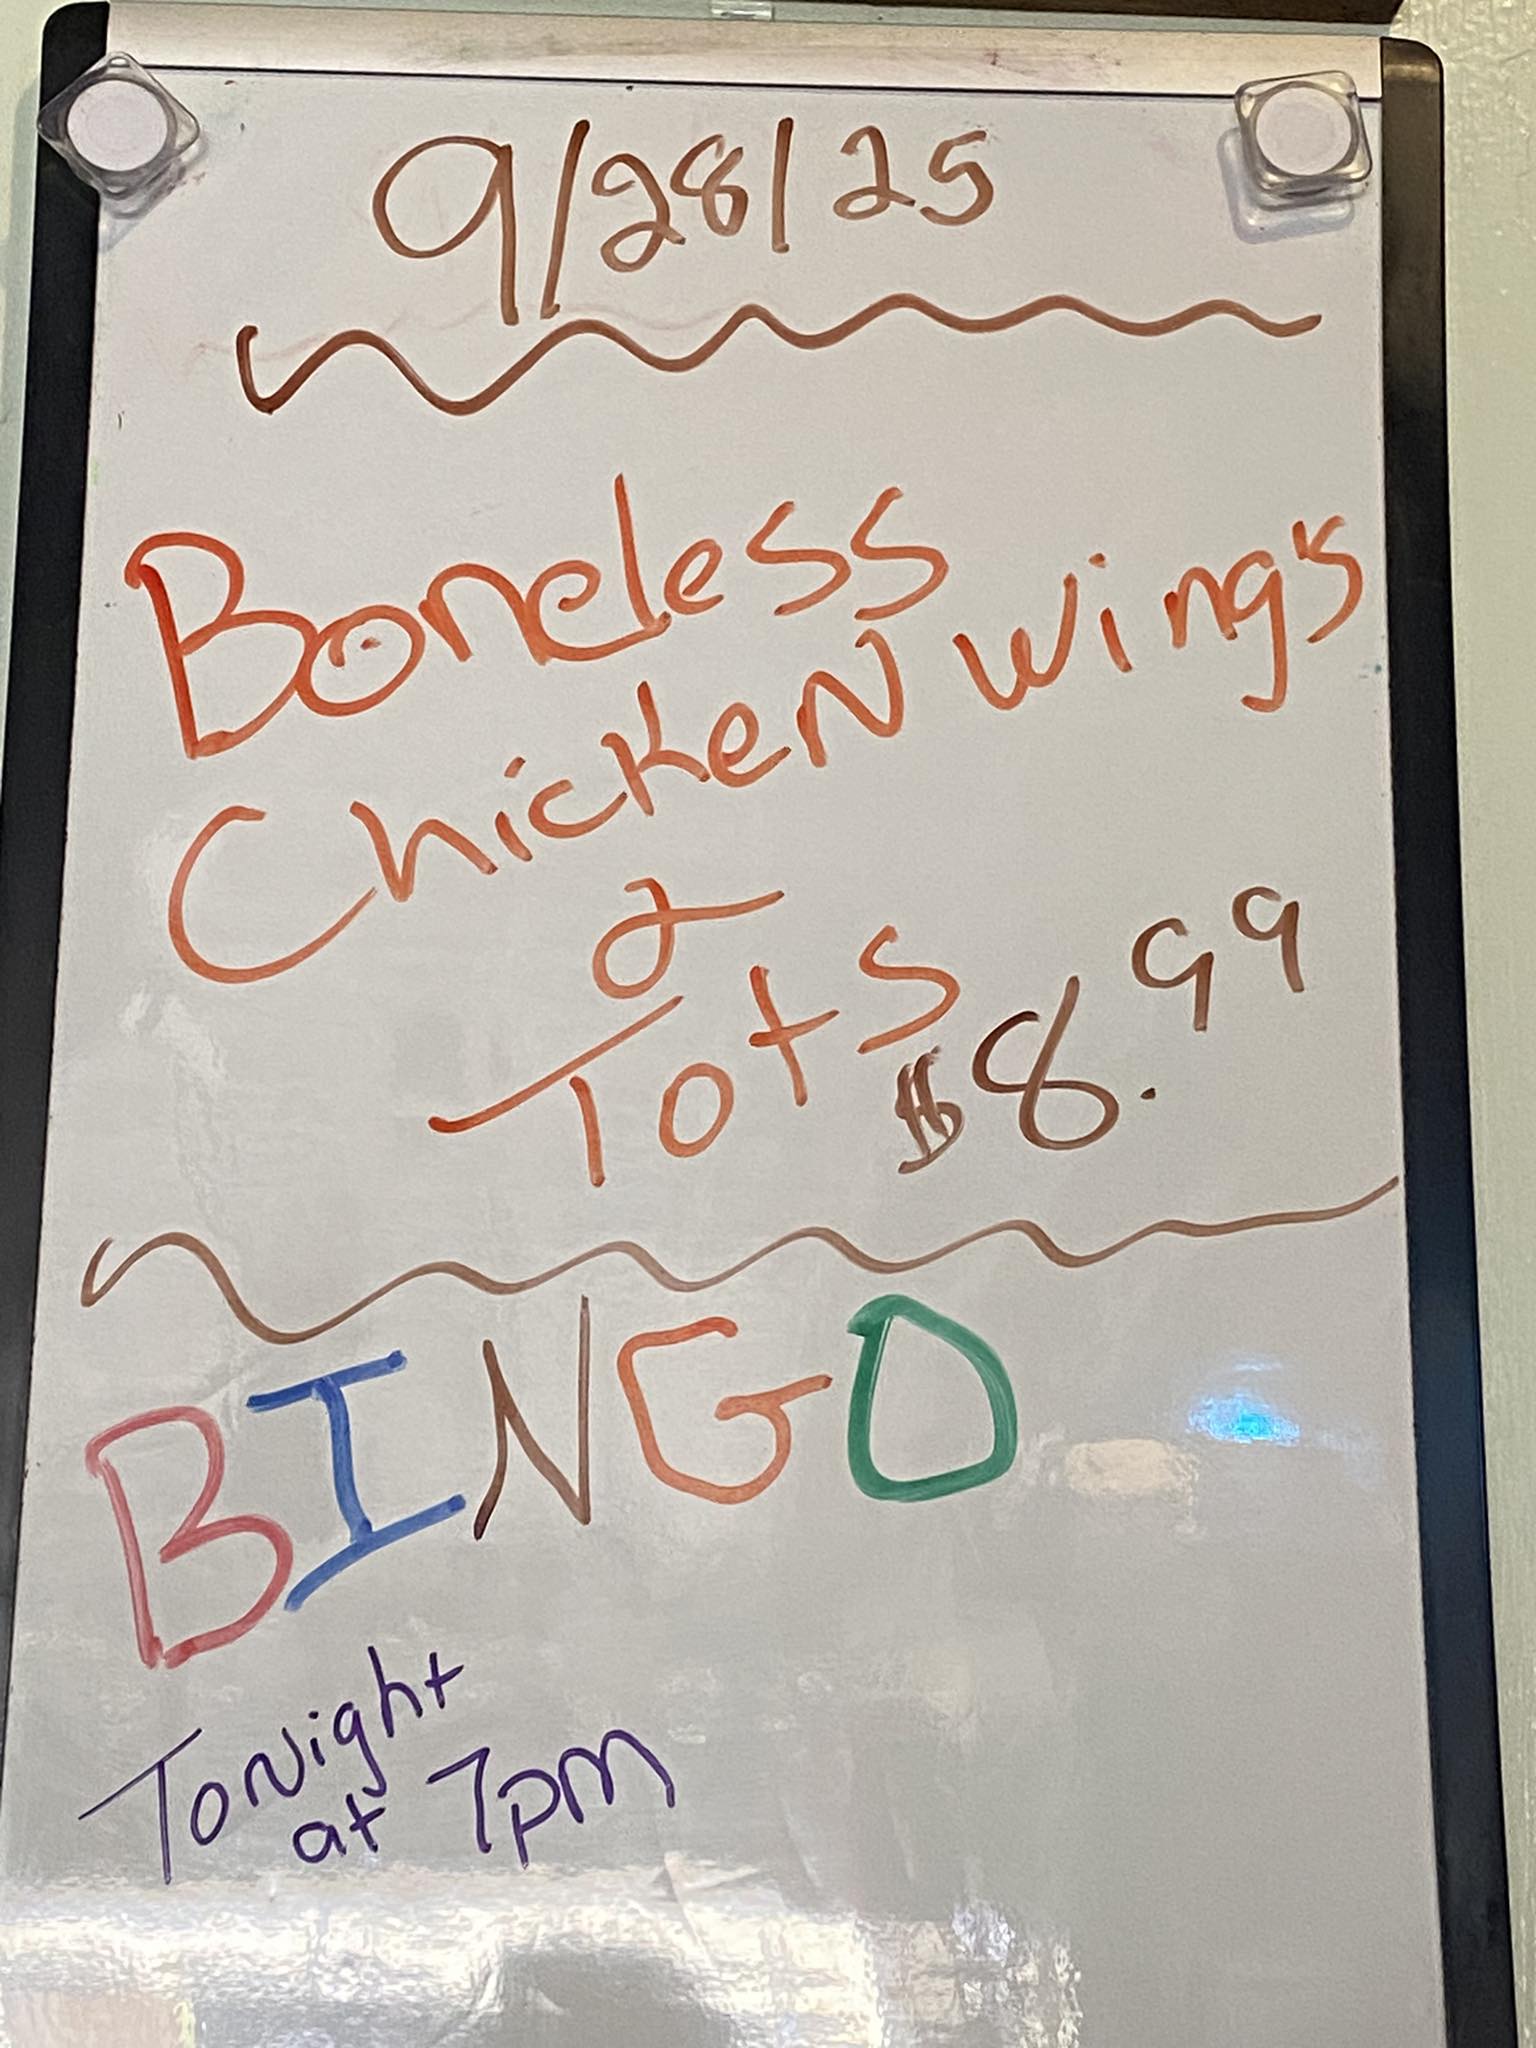 9/28/25
Boneless
Chicken wings
&
Tots
$8.99
BINGO
Tonight
at 7pm